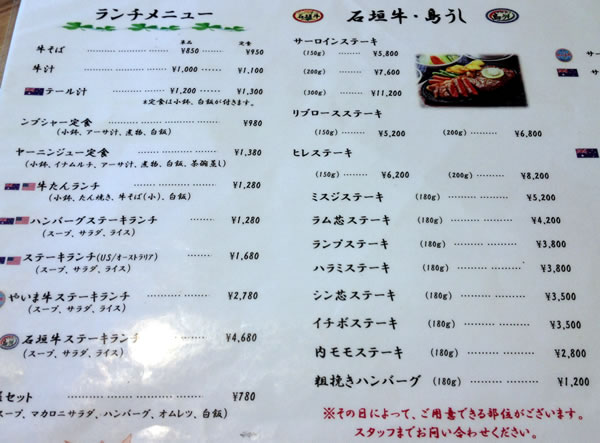 ランチメニュー
単品 定食
牛そば ¥850 ¥950
牛汁 ¥1,000 ¥1,100
テール汁 ¥1,200 ¥1,300
*定食は小鉢、白飯が付きます。
ンブシャー定食 ¥980
(小鉢、アーサ汁、煮物、白飯)
ヤーニンジュー定食 ¥1,380
(小鉢、イナムルチ、アーサ汁、煮物、白飯、茶碗蒸し)
牛たんランチ ¥1,280
(小鉢、たん焼き、牛そば(小)、白飯)
ハンバーグステーキランチ ¥1,280
(スープ、サラダ、ライス)
ステーキランチ(US/オーストラリア) ¥1,680
(スープ、サラダ、ライス)
やいま牛ステーキランチ ¥2,780
(スープ、サラダ、ライス)
石垣牛ステーキランチ ¥4,680
(スープ、サラダ、ライス)
セット ¥780
スープ、マカロニサラダ、ハンバーグ、オムレツ、白飯)
石垣牛・島うし
サーロインステーキ
(150g) ¥5,800
(200g) ¥7,600
(300g) ¥11,200
リブロースステーキ
(150g) ¥5,200 (200g) ¥6,800
ヒレステーキ
(150g) ¥6,200 (200g) ¥8,200
ミスジステーキ (180g) ¥5,200
ラム芯ステーキ (180g) ¥4,200
ランプステーキ (180g) ¥3,800
ハラミステーキ (180g) ¥3,800
シン芯ステーキ (180g) ¥3,500
イチボステーキ (180g) ¥3,500
内モモステーキ (180g) ¥2,800
粗挽きハンバーグ (180g) ¥1,200
※その日によって、ご用意できる部位がございます。
スタッフまでお問い合わせください。
サ